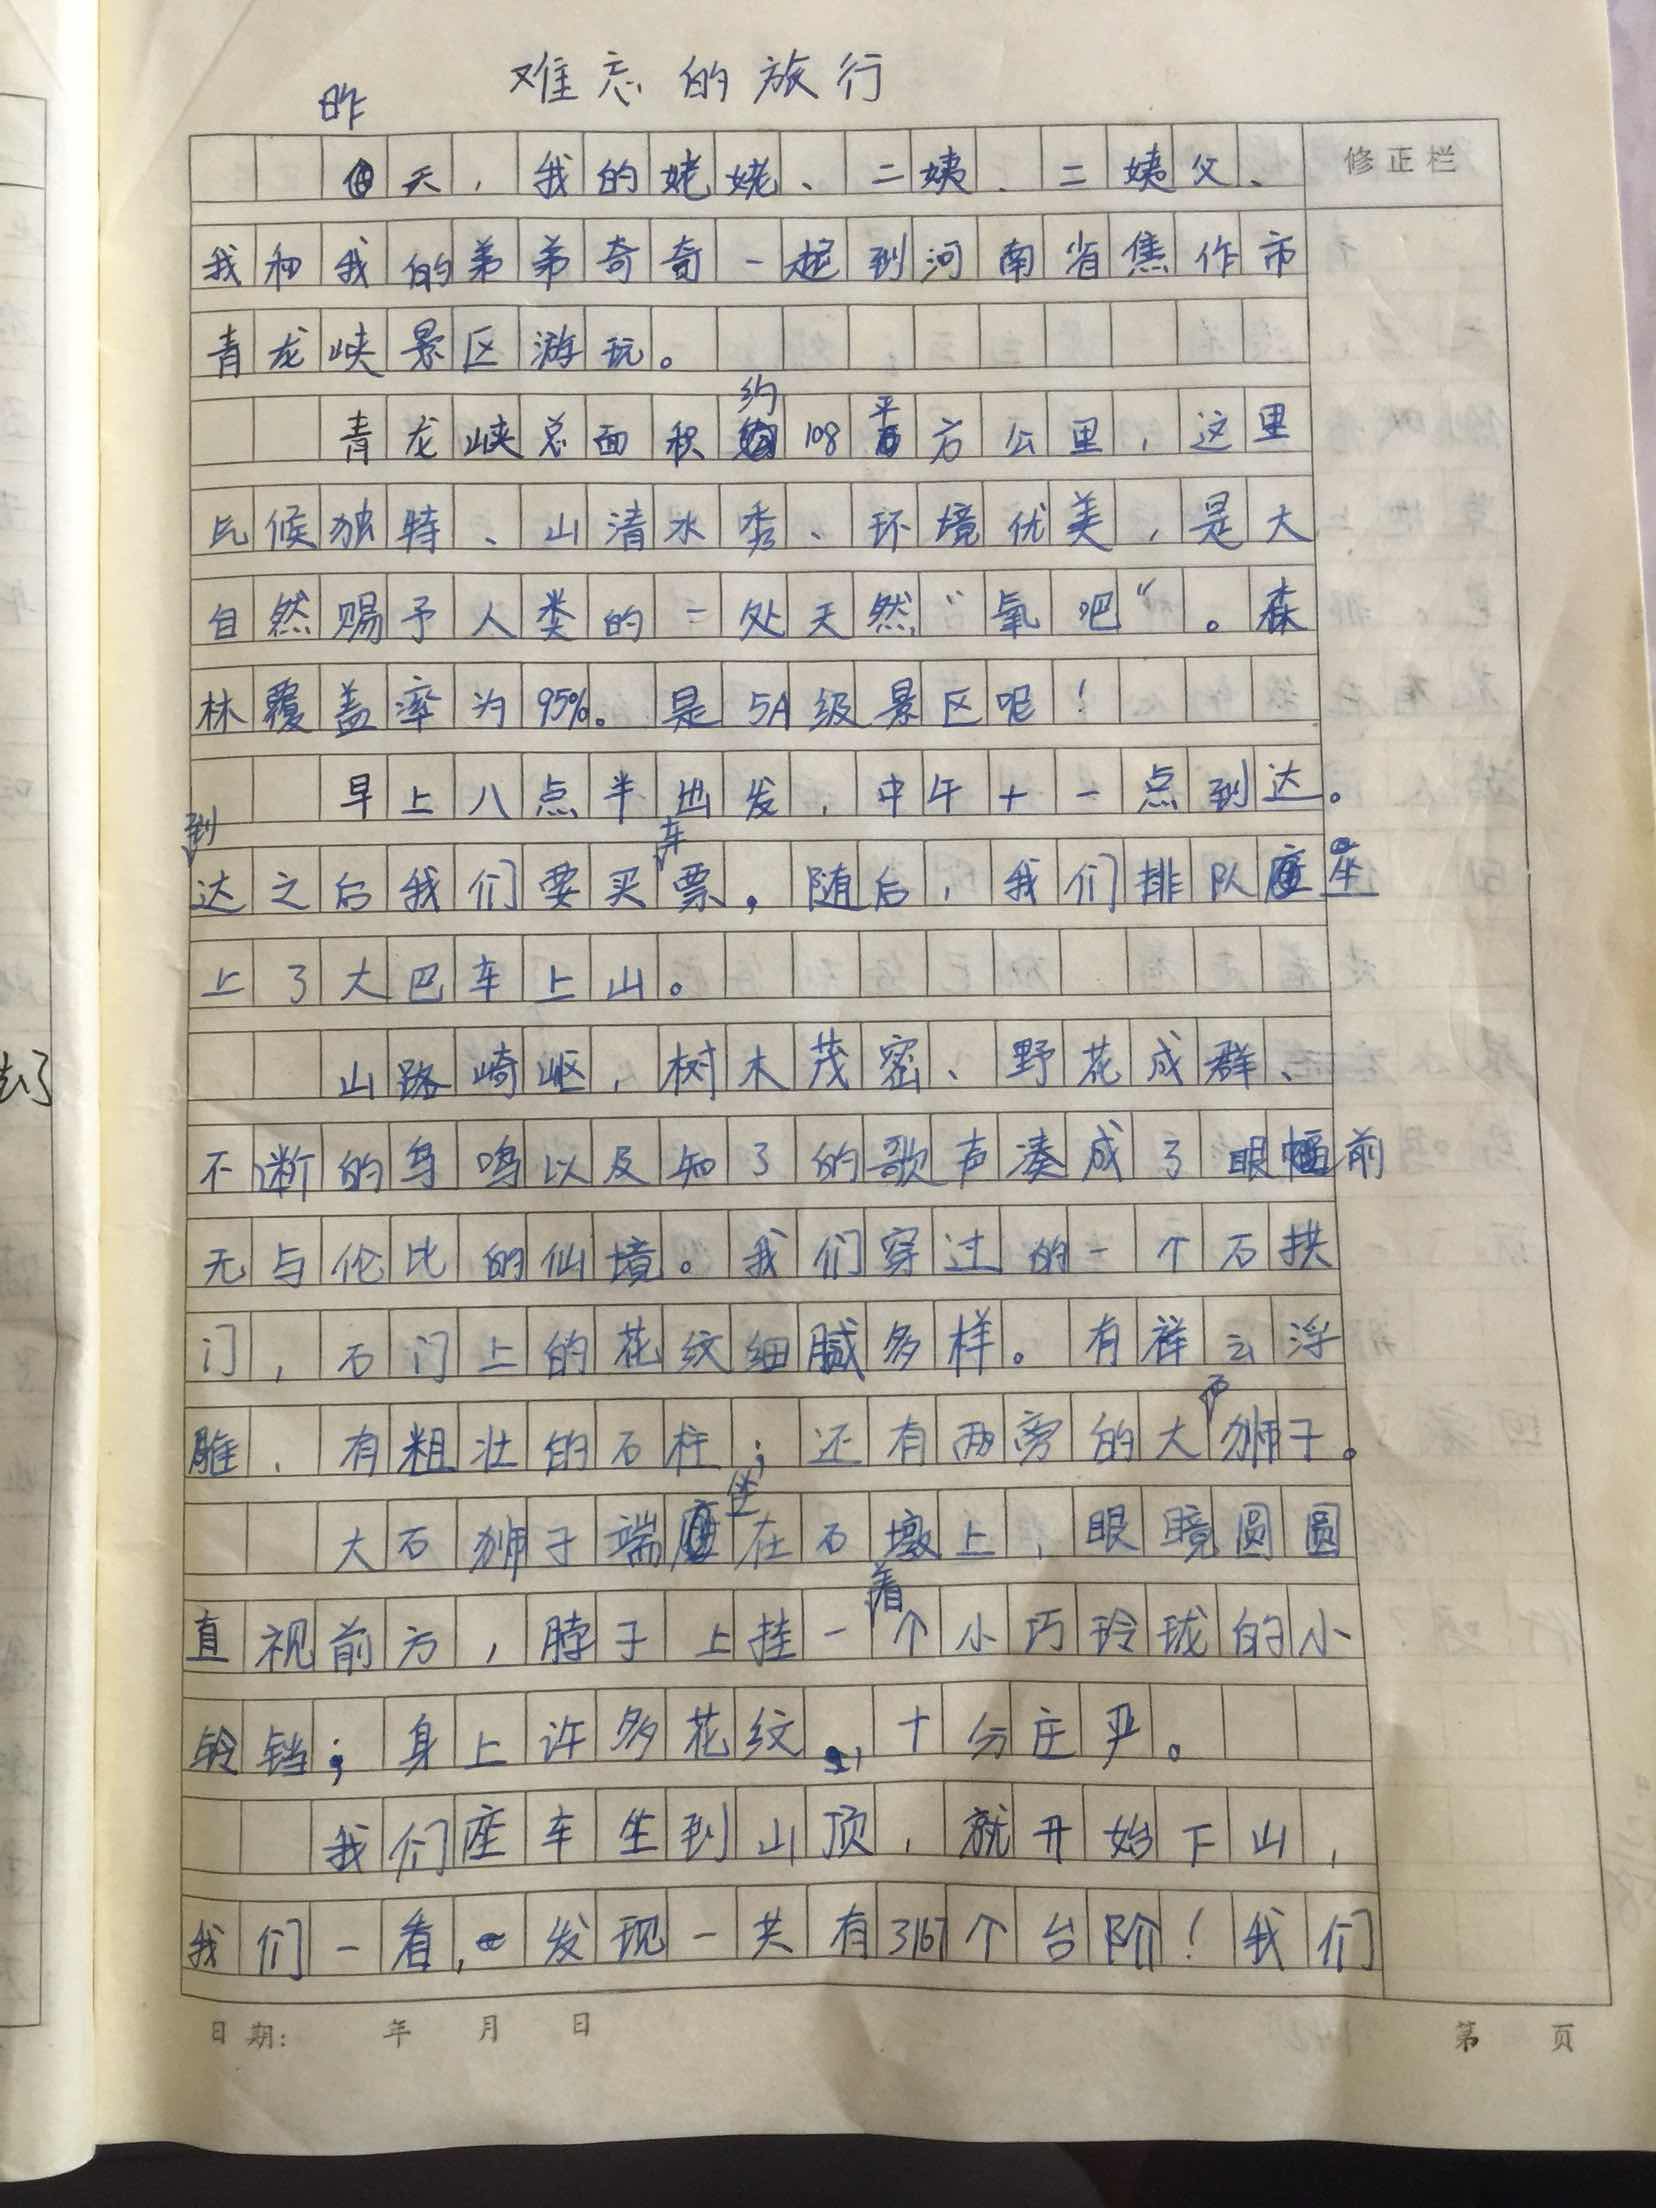 难忘的旅行
昨天，我的姥姥、二姨、二姨父、
修正栏
我和我的弟弟奇奇一起到河南省焦作市
青龙峡景区游玩。
青龙峡总面积约108平方公里，这里
气候独特、山清水秀、环境优美，是大
自然赐予人类的一处天然“氧吧”。森
林覆盖率为95%。是5A级景区呢！
早上八点半出发，中午十一点到达。
到达之后我们要买车票，随后，我们排队坐
上了大巴车上山。
山路崎岖，树木茂密、野花成群、
不断的鸟鸣以及知了的歌声凑成了眼前
无与伦比的仙境。我们穿过的一个石拱
门，石门上的花纹细腻多样。有祥云浮
雕、有粗壮的石柱；还有两旁的大石狮子。
大石狮子端坐在石墩上，眼睛圆圆
直视前方，脖子上挂着一个小巧玲珑的小
铃铛；身上许多花纹，十分庄严。
我们座车坐到山顶，就开始下山，
我们一看，发现一共有3167个台阶！我们
日期：　年　月　日
第　页